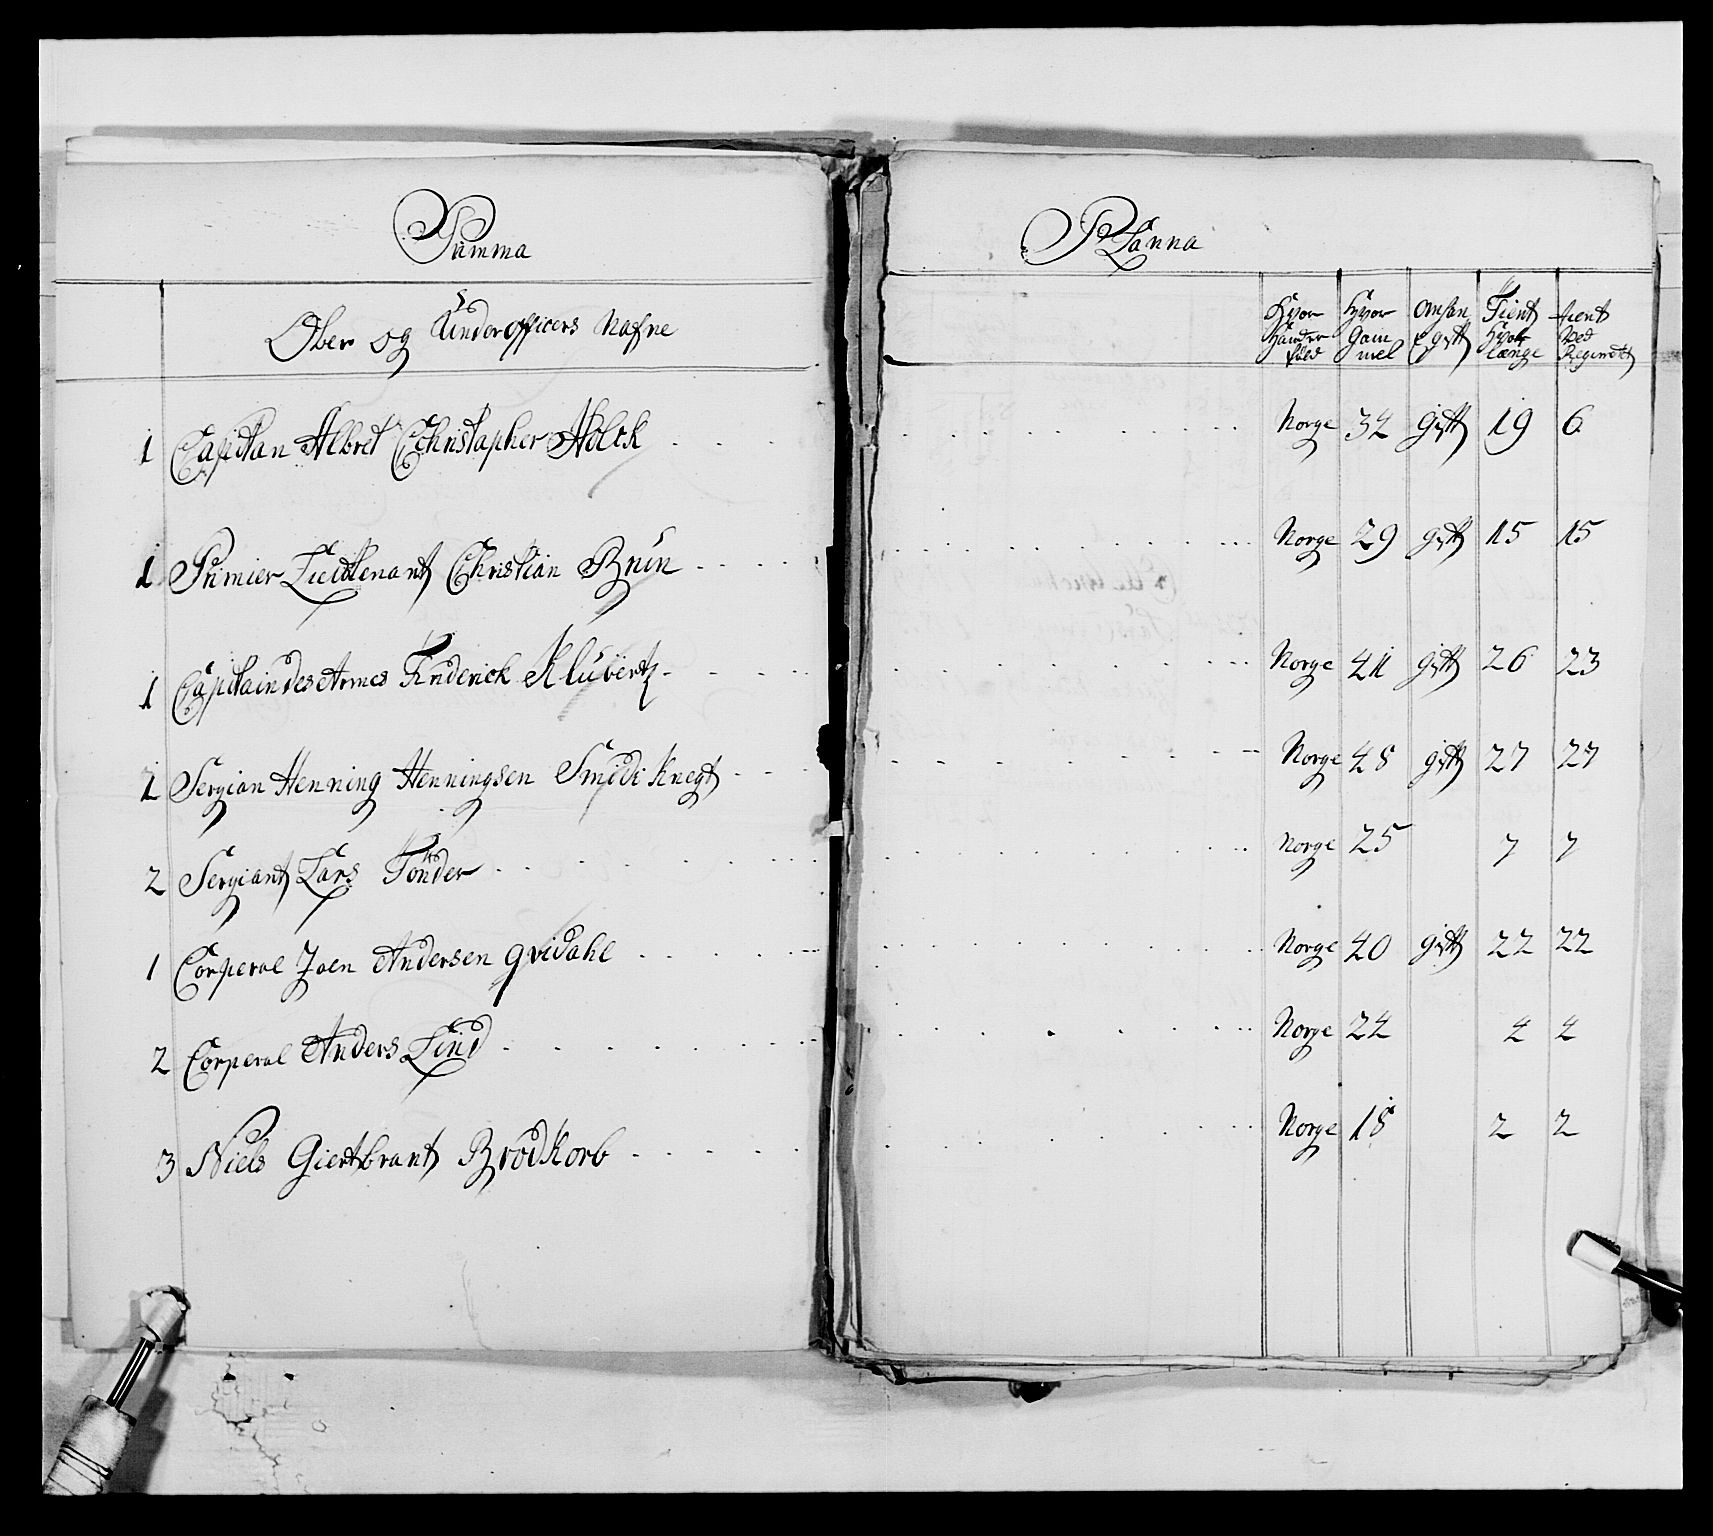 Summa
Planna
Ober og Underofficers Nafne
Hvor Hander fød
Hvor Gam mel
Omhan Er gift
Tient Hvor Længe
tient Ved Regimetet
1 Capitan Albret Christapher Holck Norge 32 gift 19 6
1 Primier Lieutenant Christian Brun Norge 29 gift 15 15
1 Capitaindesarmes Friderick Klubert Norge 41 gift 26 23
1 Sergian Henning Henningsen Smidi Knegt Norge 48 gift 27 27
2 Sergiant Lars Tønder Norge 25 7 7
1 Corperal Joen Andersen Qvidahl Norge 40 gift 22 22
2 Corperal Anders Lind Norge 22 4 4
3 Niels Giertbrant Brodkorb Norge 18 2 2